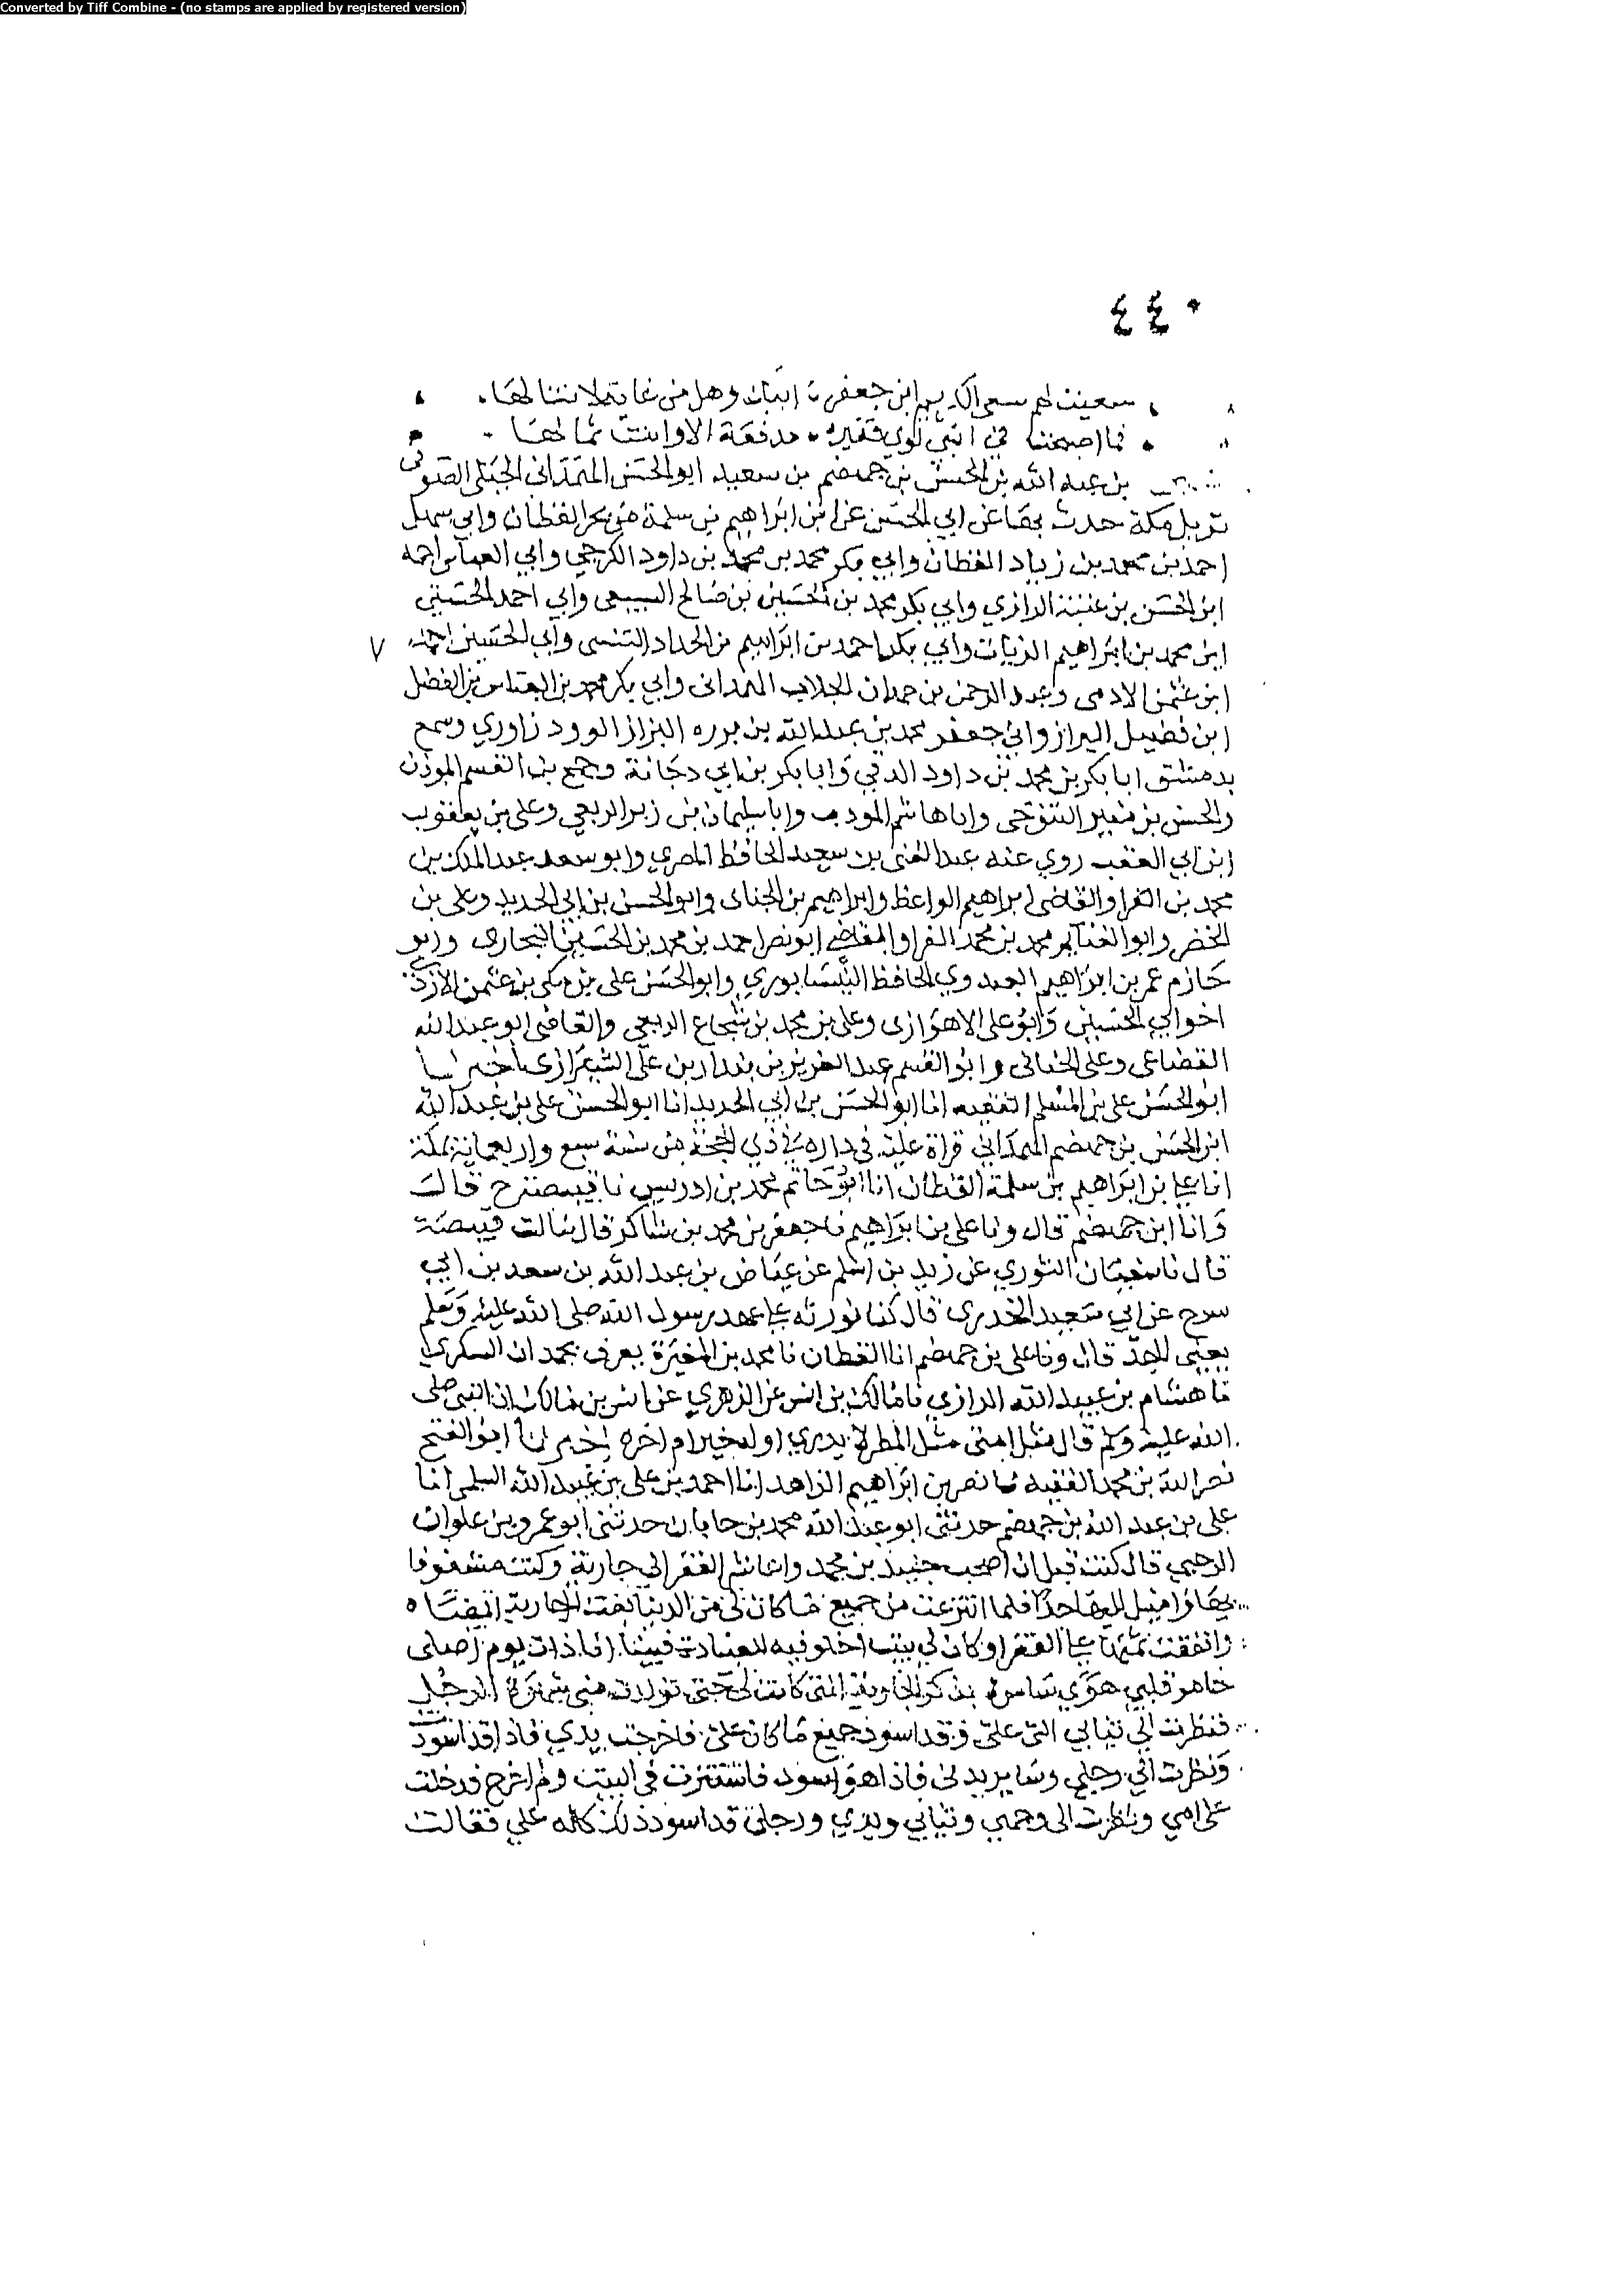 Converted by Tiff Combine - (no stamps are applied by registered version)
٤٤٠
سعيت لهم سعي الكريم ابن جعفر ابيك وهل من غاية لا تنالها
فما اصبحت في ابني لوي فقيره مدفعة الا وانت ثمالها
بن عبد الله بن الحسن بن جهضم بن سعيد ابو الحسن الهمذاني الجبلي الصوفي
نزيل مكة حدث بها عن ابي الحسن علي بن ابراهيم بن سلمة بن بحر القطان وابي سهل
احمد بن محمد بن زياد القطان وابي بكر محمد بن محمد بن داود الكرجي وابي العباس احمد
ابن الحسن بن عتبة الرازي وابي بكر محمد بن الحسين بن صالح السبيعي وابي احمد الحسين
ابن محمد بن ابراهيم الزيات وابي بكر احمد بن ابراهيم بن الحداد التنيسي وابي الحسين احمد
ابن عثمن الادمي وعبد الرحمن بن حمدان الجلاب الهمداني وابي بكر محمد بن العباس بن الفضل
ابن فضيل البزاز وابي جعفر محمد بن عبد الله بن برزه البزاز الروذراوري وسمع
بدمشق ابا بكر بن محمد بن داود الدقي وابا بكر بن ابي دجانة وجمح بن القسم الموذن
والحسن بن منير التنوخي وابا هاشم المودب وابا سليمان بن زبر الربعي وعلي بن يعقوب
ابن ابي العقب روي عنه عبد الغني بن سعيد الحافظ المصري وابو سعد عبد الملك بن
محمد بن الفرا والقاضي ابراهيم الواعظ وابراهيم بن الجناي وابو الحسن بن ابي الحديد وعلي بن
الخضر وابو الغنايم محمد بن محمد الفرا والقاضي ابو نصر احمد بن محمد بن الحسين البخاري وابو
حازم عمر بن ابراهيم العبدوي الحافظ النيسابوري وابو الحسن علي بن مكي بن عثمن الازدي
اخو ابي الحسين وابو علي الاهوازي وعلي بن محمد بن شجاع الربعي والقاضي ابو عبد الله
القضاعي وعلي الحنائي وابو القسم عبد العزيز بن بندار بن علي الشيرازي اخبرنا
ابو الحسن علي بن المسلم الفقيه انا ابو الحسن بن ابي الحديد انا ابو الحسن علي بن عبد الله
ابن الحسن بن جهضم الهمداني قراة عليه في داره في ذي الحجة من سنة سبع واربعماية بمكة
انا علي بن ابراهيم بن سلمة القطان انا ابو حاتم محمد بن ادريس نا قبيصة ح قال
وانا ابن جهضم قال ونا علي بن ابراهيم نا جعفر بن محمد بن شاكر قال نا قبيصة
قال نا سفيان الثوري عن زيد بن اسلم عن عياض بن عبد الله بن سعد بن ابي
سرح عن ابي سعيد الخدري قال كنا نورثه علي عهد رسول الله صلى الله عليه وسلم
يعني الجد قال ونا علي بن جهضم انا القطان نا محمد بن المغيرة يعرف بحمدان السكري
نا هشام بن عبيد الله الرازي نا مالك بن انس عن الزهري عن انس بن مالك ان النبي صلى
الله عليه وسلم قال مثل امتي مثل المطر لا يدري اوله خير ام اخره اخبرنا ابو الفتح
نصر الله بن محمد الفقيه نا نصر بن ابراهيم الزاهد انا احمد بن علي بن عبيد الله السلمي انا
علي بن عبد الله بن جهضم حدثني ابو عبد الله محمد بن جابان حدثني ابو عمرو بن علوان
الرحبي قال كنت قبل ان اصحب جنيد بن محمد واعاشر الفقرا لي جارية وكنت مشغوفا
بها واميل اليها جدا فلما انتزعت من جميع ما كان لي من الدنيا بعت الجارية ايضا
وانفقت ثمنها علي الفقرا وكان لي بيت اخلو فيه للعبادة فبينا انا ذات يوم اصلي
خامر قلبي هوي شاسع بذكر الجارية التي كانت لي حتى تولدت مني شهوة الرجل
فنظرت الي ثيابي التي علي وقد اسود جميع ما كان علي فاخرجت يدي فاذا قد اسودت
ونظرت الي رجلي وسائر بدني فاذا هو اسود فاستترت في البيت ولم اخرج فدخلت
علي امي ونظرت الى وجهي وثيابي ويدي ورجلي قد اسود ذلك كله علي فقالت